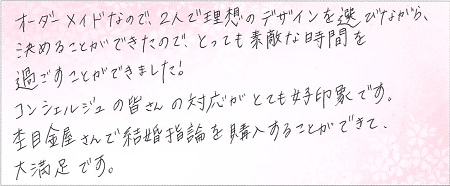 オーダーメイドなので、2人で理想のデザインを選びながら、
決めることができたので、とっても素敵な時間を
過ごすことができました!
コンシェルジュの皆さんの対応がとても好印象です。
杢目金屋さんで結婚指論を購入することができて、
大満足です。